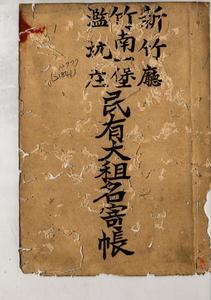 新竹廳
竹南一堡
濫坑庄
民有大租名寄帳